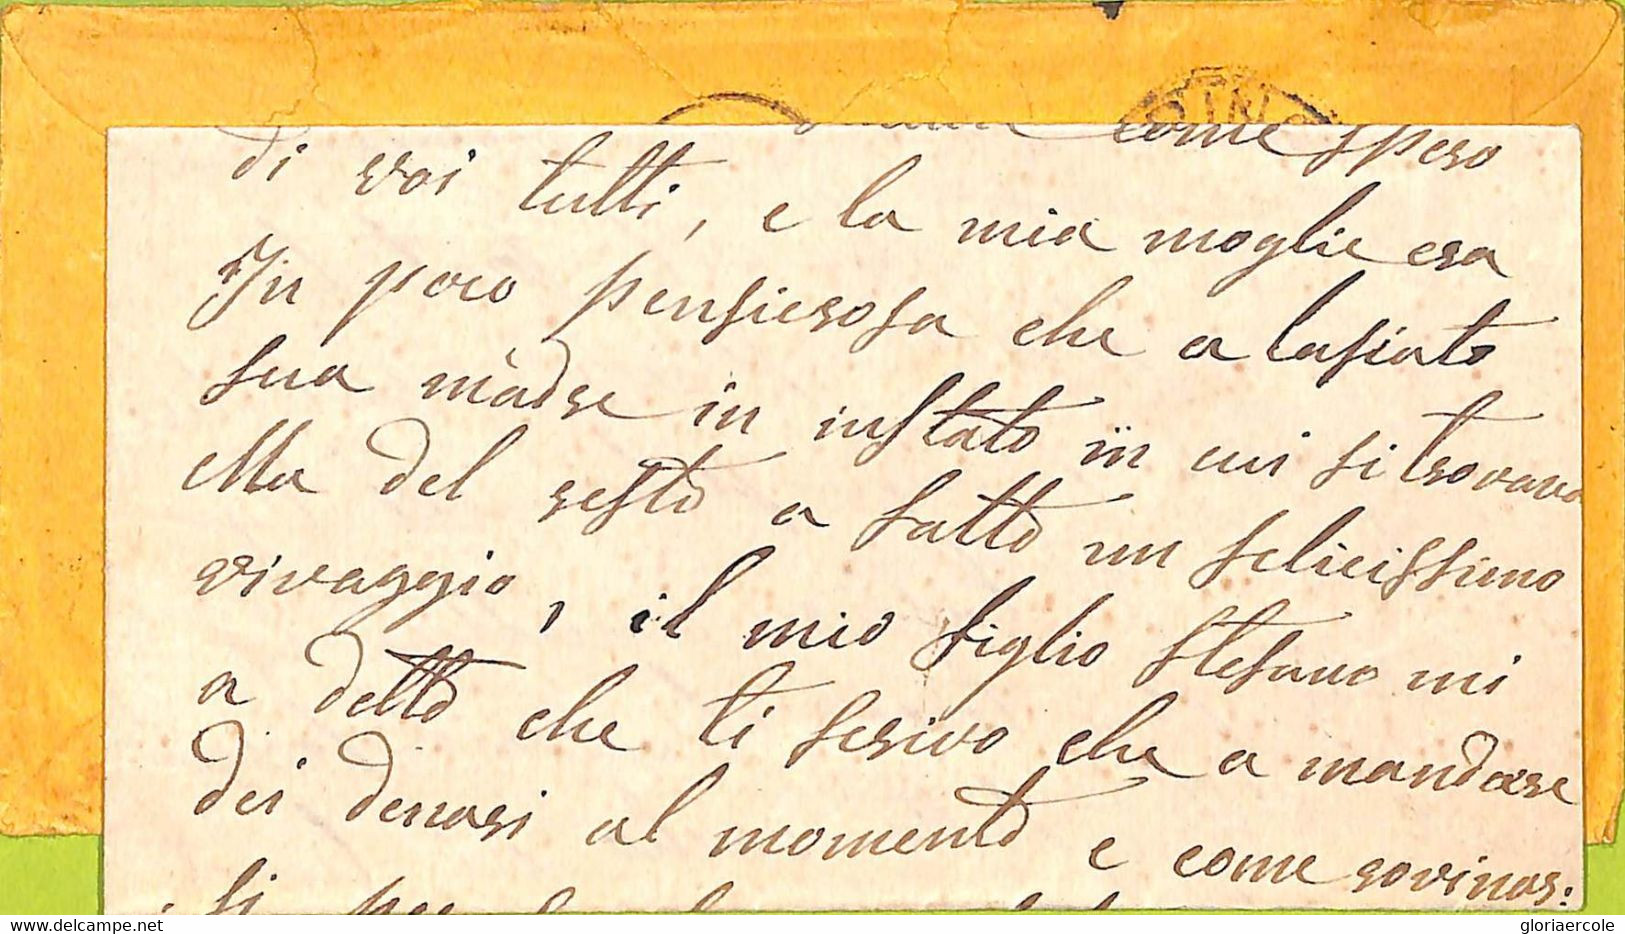 come spero
di voi tutti, e la mia moglie era
In poco pensierosa che a lasiato
sua madre in instato in cui si trovava
Ma del resto a fatto un felicissimo
vivaggio, il mio figlio Stefano mi
a detto che ti scrivo che a mandare
dei denari al momento e come rovinar:
si per
www.delcampe.net
gloriaercole